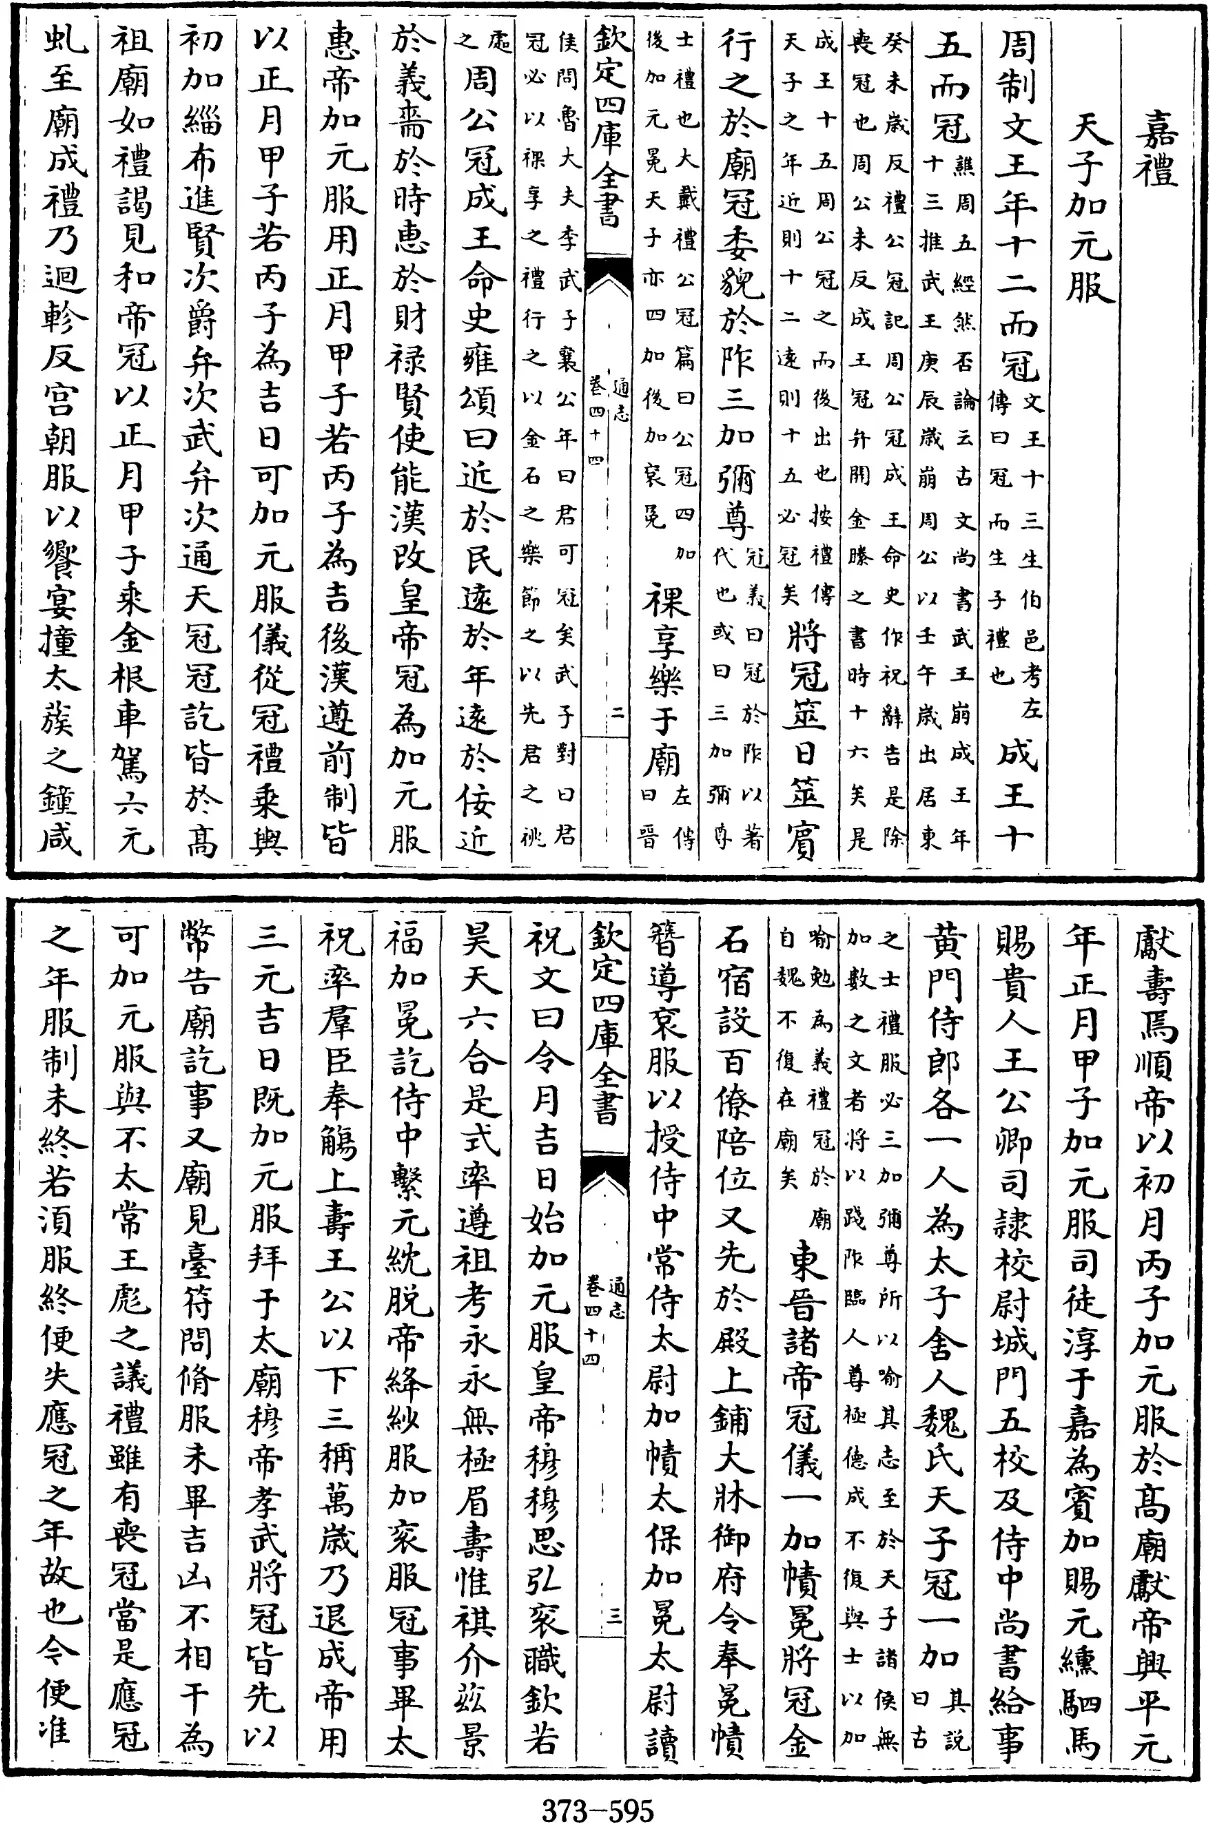 嘉禮
天子加元服
周制文王年十二而冠文王十三生伯邑考左傳曰冠而生子禮也成王十
五而冠譙周五經然否論云古文尚書武王崩成王年十三推武王庚辰歲崩周公以壬午歲出居東
癸未歲反禮公冠記周公冠成王命史作祝辭告是除喪冠也周公未反成王冠弁開金縢之書時十六矣是
成王十五周公冠之而後出也按禮傳天子之年近則十二遠則十五必冠矣將冠筮日筮賓
行之於廟冠委貌於阼三加彌尊冠義曰冠於阼以著代也或曰三加彌尊
士禮也大戴禮公冠篇曰公冠四加後加元冕天子亦四加後加袞冕祼享樂于廟左傳曰晉
欽定四庫全書 通志卷四十四 二
侯問魯大夫季武子襄公年曰君可冠矣武子對曰君冠必以祼享之禮行之以金石之樂節之以先君之祧
處之周公冠成王命史雍頌曰近於民遠於年遠於佞近
於義嗇於時惠於財祿賢使能漢改皇帝冠為加元服
惠帝加元服用正月甲子若丙子為吉後漢遵前制皆
以正月甲子若丙子為吉日可加元服儀從冠禮乘輿
初加緇布進賢次爵弁次武弁次通天冠冠訖皆於高
祖廟如禮謁見和帝冠以正月甲子乘金根車駕六元
虬至廟成禮乃迴軫反宮朝服以饗宴撞太蔟之鐘咸
獻壽焉順帝以初月丙子加元服於高廟獻帝興平元
年正月甲子加元服司徒淳于嘉為賓加賜元纁駟馬
賜貴人王公卿司隸校尉城門五校及侍中尚書給事
黃門侍郎各一人為太子舍人魏氏天子冠一加其說曰古
之士禮服必三加彌尊所以喻其志至於天子諸侯無加數之文者將以踐阼臨人尊極德成不復與士以加
喻勉為義禮冠於廟自魏不復在廟矣東晉諸帝冠儀一加幘冕將冠金
石宿設百僚陪位又先於殿上鋪大牀御府令奉冕幘
簪導袞服以授侍中常侍太尉加幘太保加冕太尉讀
欽定四庫全書 通志卷四十四 三
祝文曰令月吉日始加元服皇帝穆穆思弘袞職欽若
昊天六合是式率遵祖考永永無極眉壽惟祺介茲景
福加冕訖侍中繫元紞脫帝絳紗服加袞服冠事畢太
祝率羣臣奉觴上壽王公以下三稱萬歲乃退成帝用
三元吉日既加元服拜于太廟穆帝孝武將冠皆先以
幣告廟訖事又廟見臺符問脩服未畢吉凶不相干為
可加元服與不太常王彪之議禮雖有喪冠當是應冠
之年服制未終若須服終便失應冠之年故也令便准
373-595